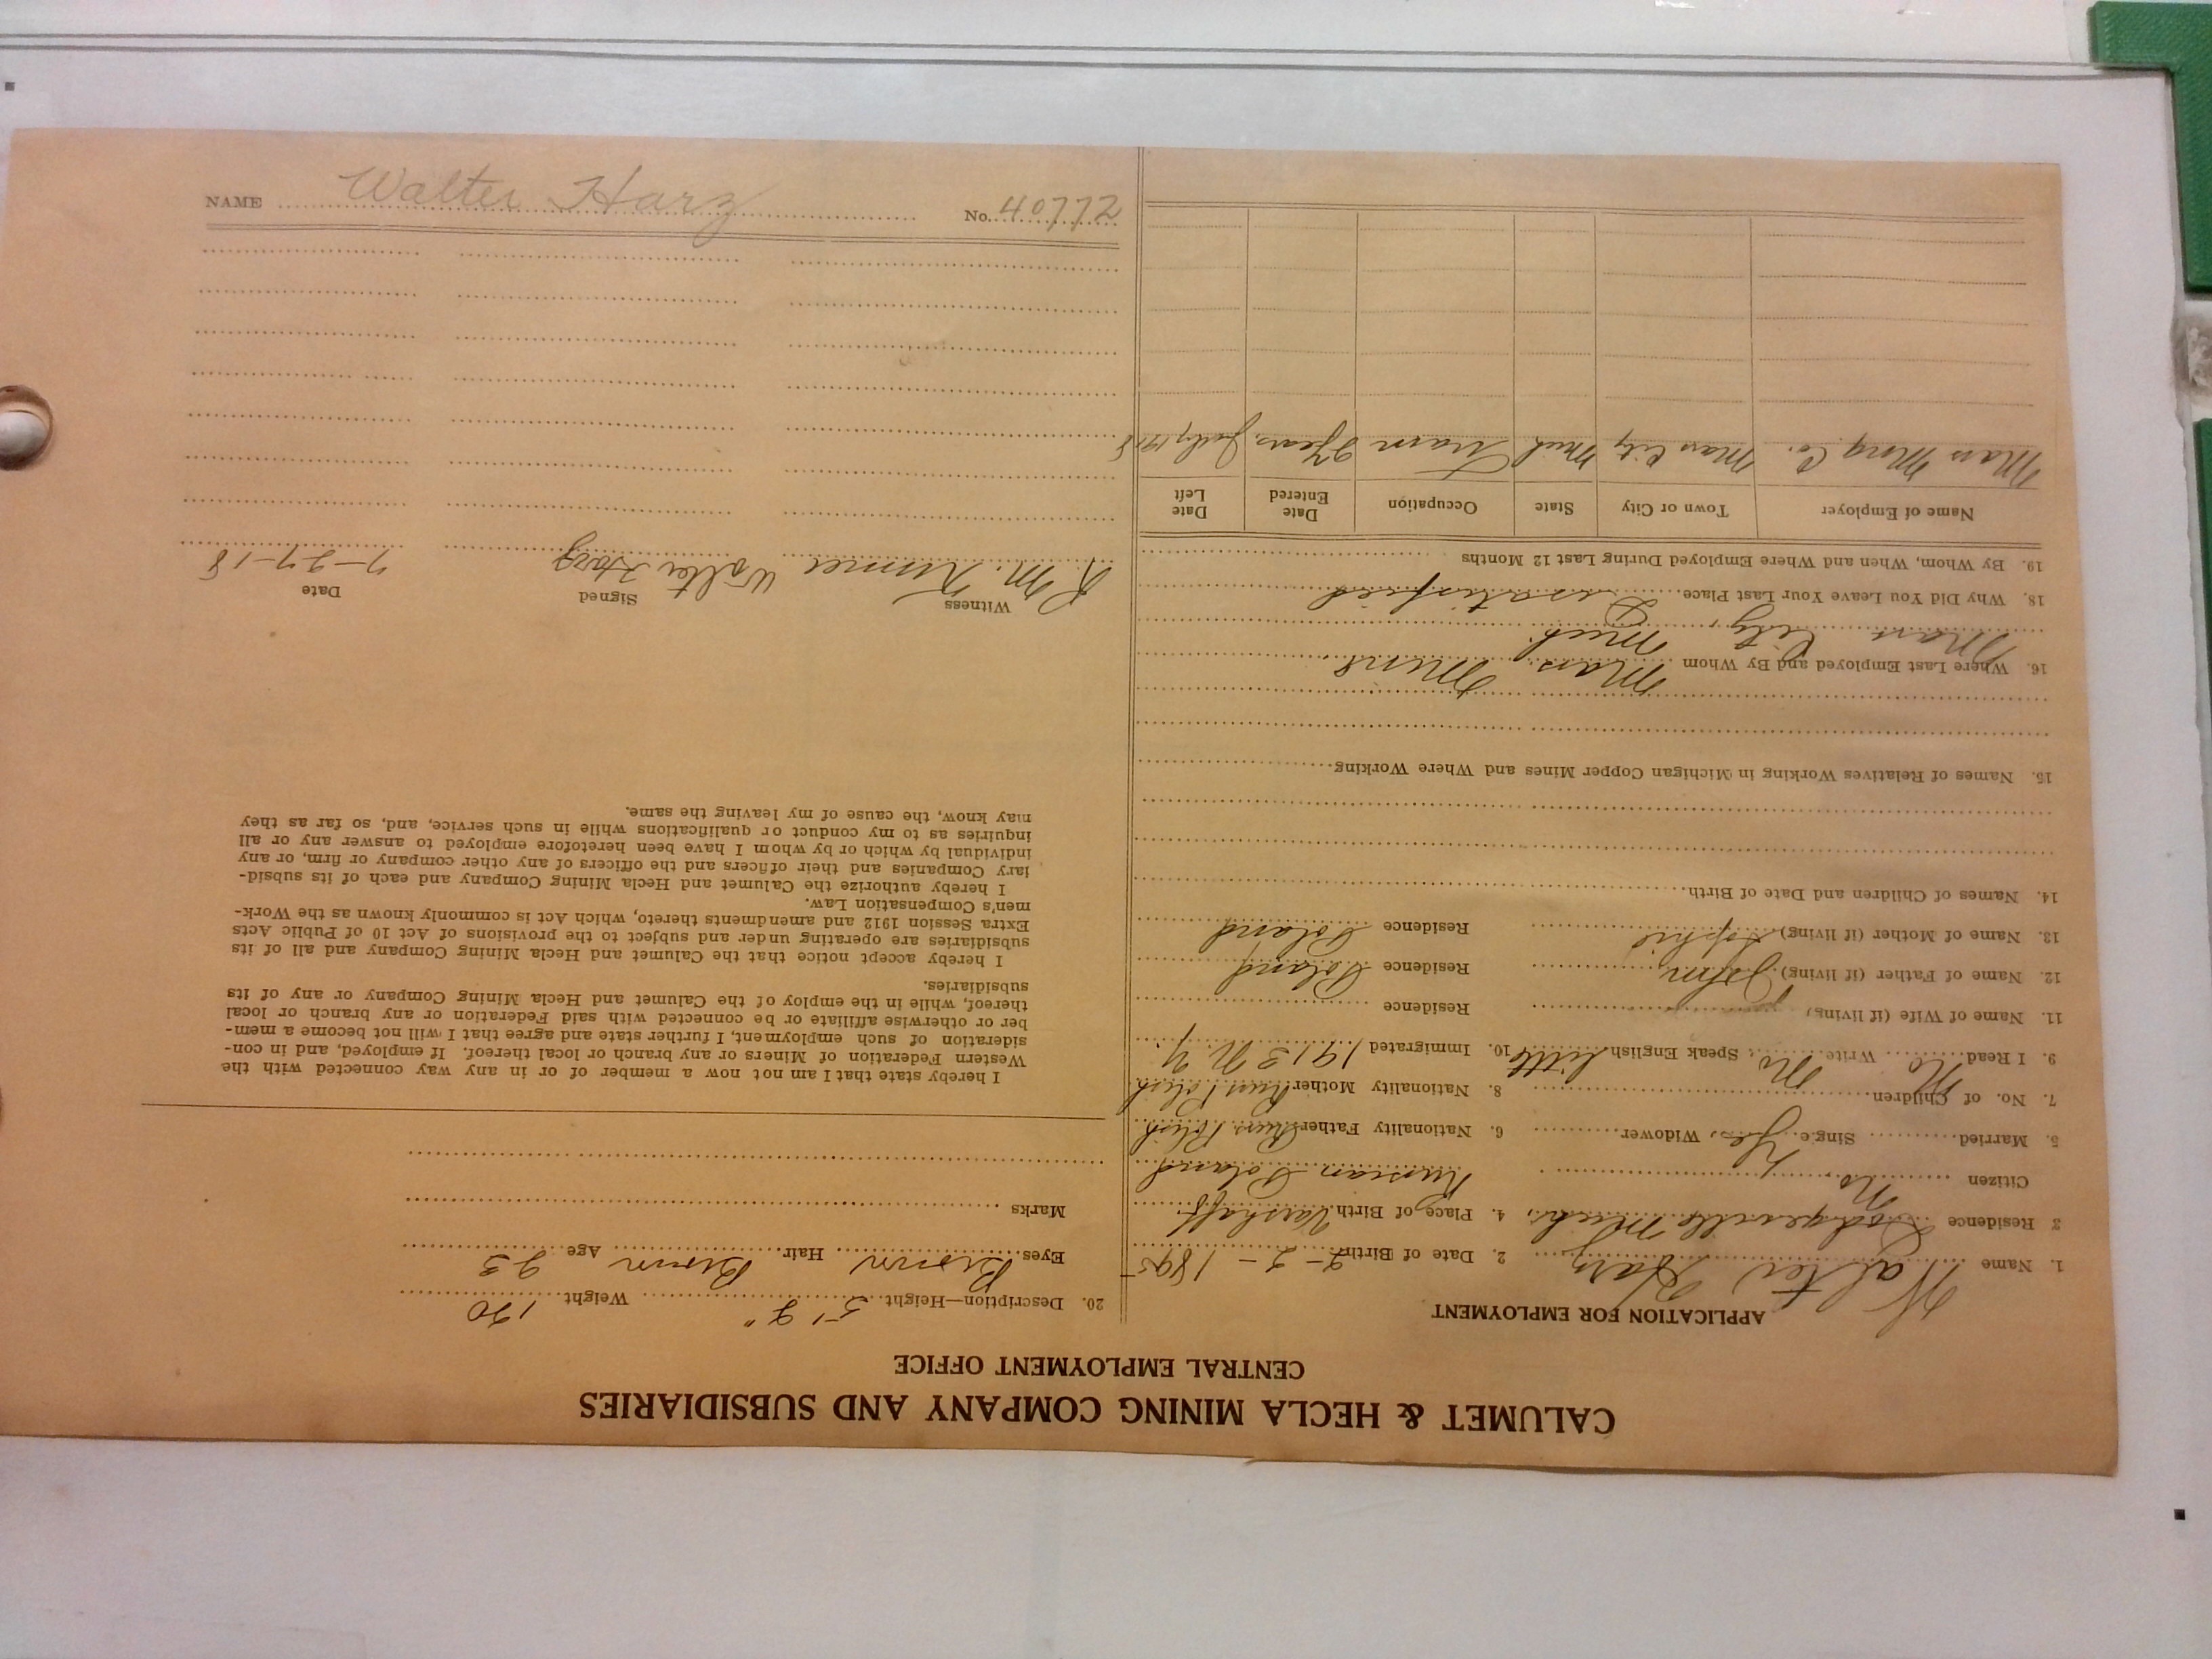 CALUMET & HECLA MINING COMPANY AND SUBSIDIARIES
CENTRAL EMPLOYMENT OFFICE
APPLICATION FOR EMPLOYMENT
1. Name Walter Harz 2. Date of Birth 2-2-1895
3 Residence Dodgeville Mich. 4. Place of Birth Varshaff
Citizen No. Russian Poland
5. Married Single Yes, Widower 6. Nationality Father Russ. Polish
7. No. of Children No 8. Nationality Mother Russ. Polish
9. I Read No Write No, Speak English little 10. Immigrated 1913 N.Y.
11. Name of Wife (if living) Residence
12. Name of Father (if living) John Residence Poland
13. Name of Mother (if living) Sophie Residence Poland
14. Names of Children and Date of Birth
15. Names of Relatives Working in Michigan Copper Mines and Where Working
16. Where Last Employed and By Whom Mass Mine
Mass City, Mich.
18. Why Did You Leave Your Last Place Dissatisfied
19. By Whom, When and Where Employed During Last 12 Months
Name of Employer Town or City State Occupation Date Entered Date Left
Mass Mng. Co. Mass City Mich Tram 2 Years July 1918
20. Description—Height 5' 9" Weight 190
Eyes Brown Hair Brown Age 23
Marks
I hereby state that I am not now a member of or in any way connected with the
Western Federation of Miners or any branch or local thereof. If employed, and in con-
sideration of such employment, I further state and agree that I will not become a mem-
ber or otherwise affiliate or be connected with said Federation or any branch or local
thereof, while in the employ of the Calumet and Hecla Mining Company or any of its
subsidiaries.
I hereby accept notice that the Calumet and Hecla Mining Company and all of its
subsidiaries are operating under and subject to the provisions of Act 10 of Public Acts
Extra Session 1912 and amendments thereto, which Act is commonly known as the Work-
men's Compensation Law.
I hereby authorize the Calumet and Hecla Mining Company and each of its subsid-
iary Companies and their officers and the officers of any other company or firm, or any
individual by which or by whom I have been heretofore employed to answer any or all
inquiries as to my conduct or qualifications while in such service, and, so far as they
may know, the cause of my leaving the same.
Witness Signed Date
R M. Walter Harz 7-27-18
NAME Walter Harz No. 40772